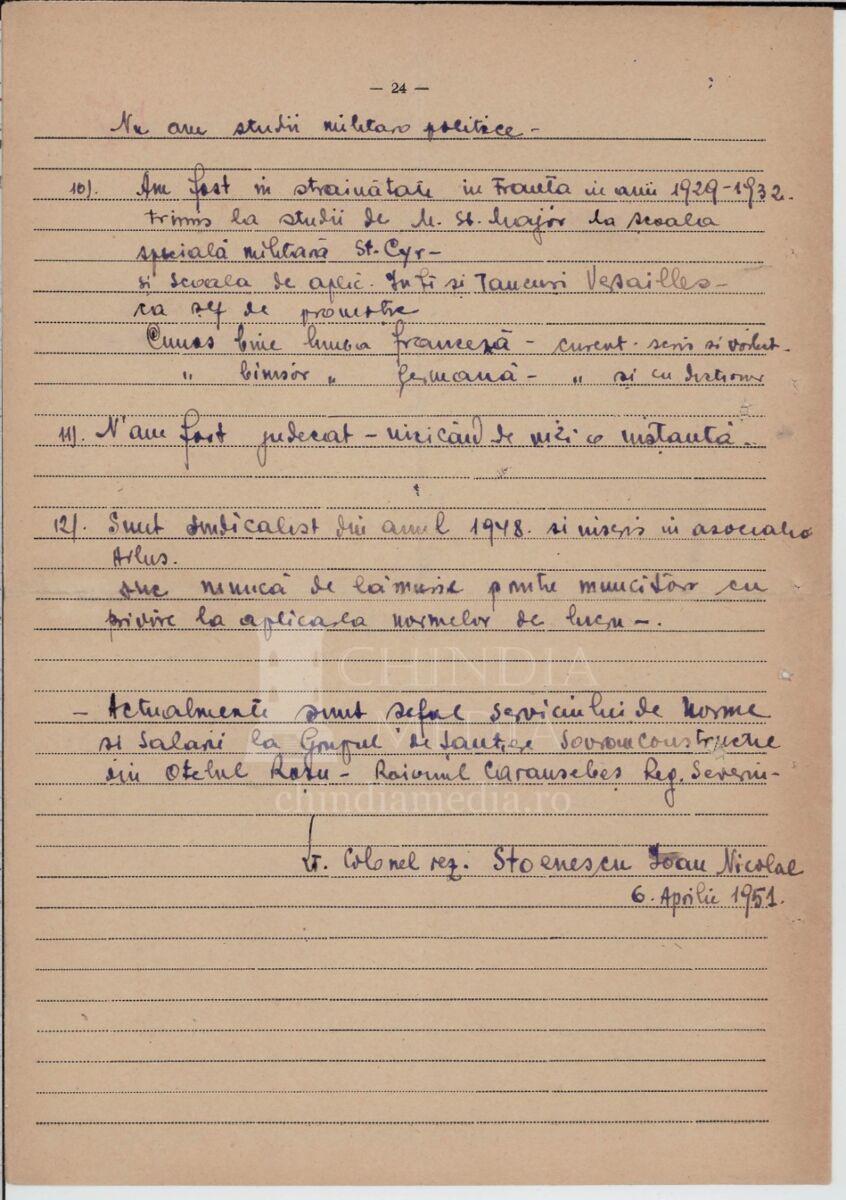 — 24 —
Nu am studii militaro politice -
10). Am fost in strainătate in Franta in anii 1929-1932.
trimis la studii de M. St. Major la scoala
specială militară St. Cyr -
si scoala de aplic. Inf. si Tancuri Versailles -
ca sef de promotie
Cunosc bine limba franceză - curent - scris si vorbit -
" binisor " germană - " si cu dictionar
11). N'am fost judecat - nicicând de nici o instantă.
12). Sunt sindicalist din anul 1948. si inscris in asociatia
Arlus.
Duc muncă de lămurire printre muncitori cu
privire la aplicarea normelor de lucru -.
- Actualmente sunt seful serviciului de norme
si salarii la Grupul de Santiere Sovromconstructie
din Otelul Rosu - Raionul Caransebes Reg. Severin -
CHINDIA
MEDIA
chindiamedia.ro
Lt. Colonel rez. Stoenescu Ioan Nicolae
6. Aprilie 1951.